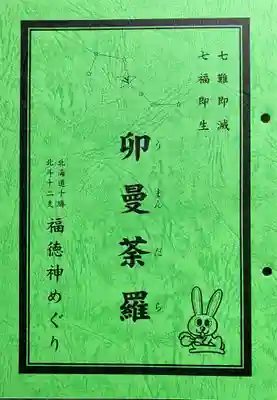 七難即滅
七福即生
卯曼荼羅
う まん だ ら
北海道十勝
北斗十二支
福徳神めぐり